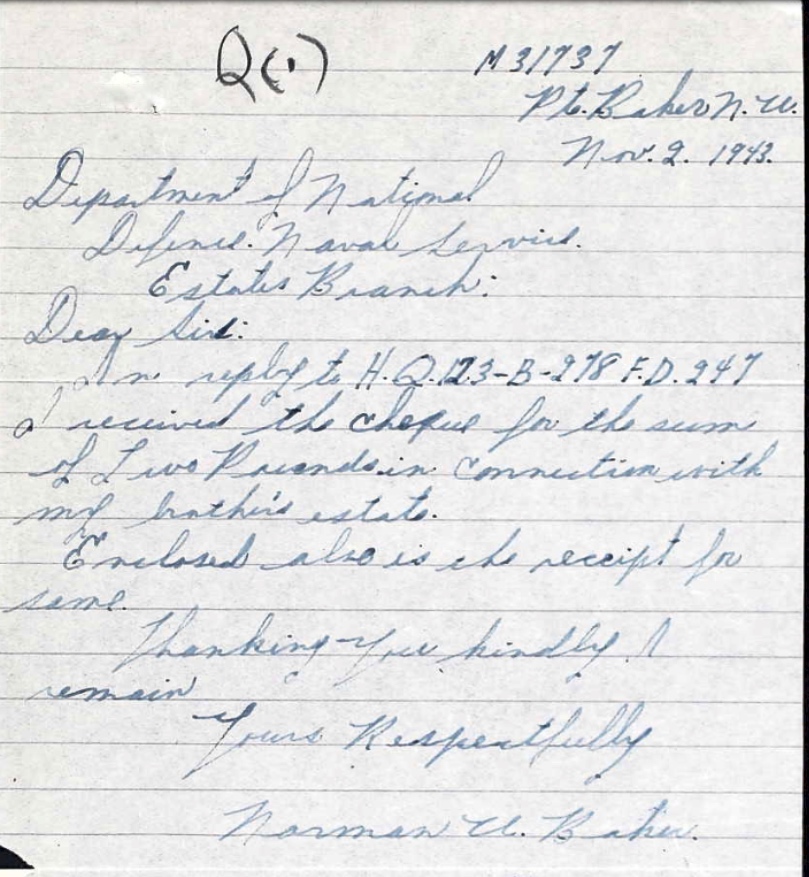 Q(1)
M31737
Pte. Baker N. W.
Nov. 2. 1943.
Department of National
Defence. Naval Service.
Estates Branch:
Dear Sir:
In reply to H.Q. 123-B-278 F.D. 247
I received the cheque for the sum
of Two Pounds in connection with
my brother's estate.
Enclosed also is the receipt for
same.
Thanking You kindly I
remain
Yours Respectfully
Norman W. Baker.